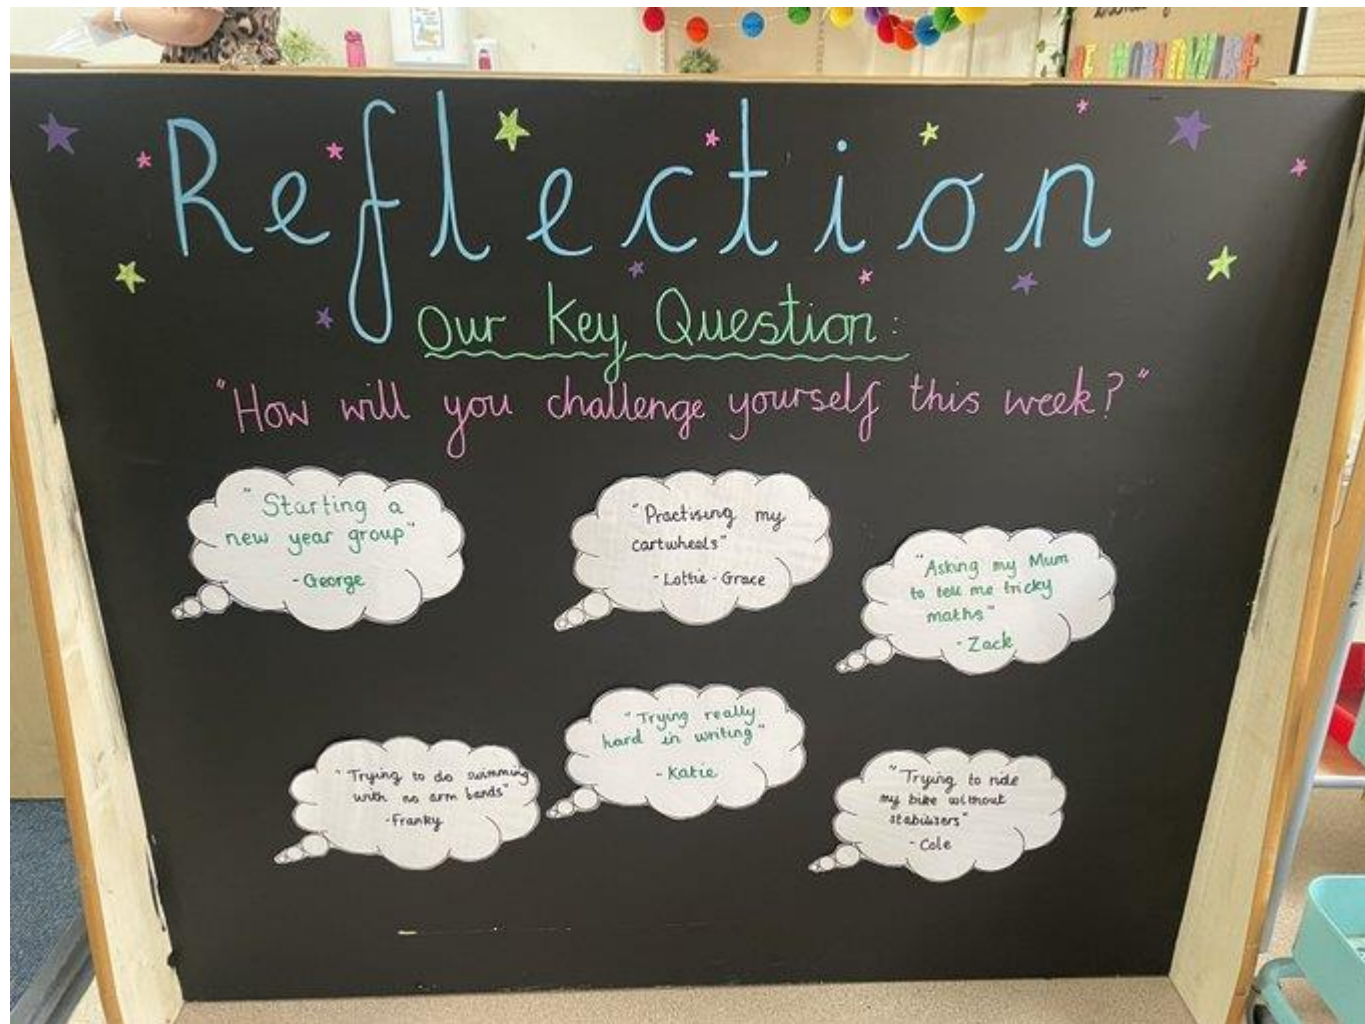 Reflection
Our Key Question:
"How will you challenge yourself this week?"
"Starting a
new year group"
- George
"Practising my
cartwheels"
- Lottie - Grace
"Asking my Mum
to tell me tricky
maths"
- Zack
"Trying to do swimming
with no arm bands"
- Franky
"Trying really
hard in writing"
- Katie
"Trying to ride
my bike without
stabilisers"
- Cole